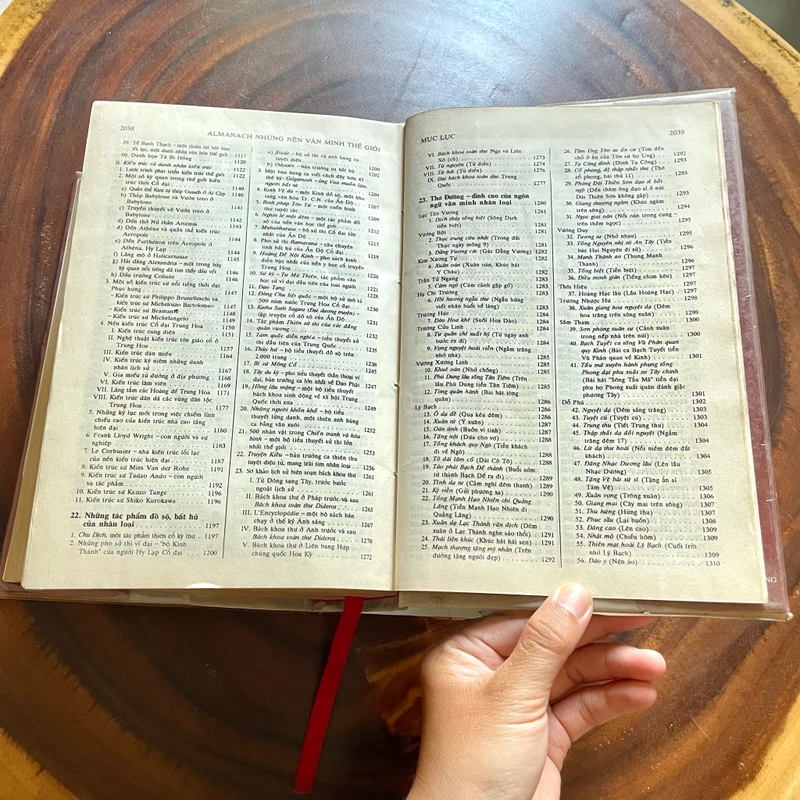 2038
ALMANACH NHỮNG NỀN VĂN MINH THẾ GIỚI
39. Tề Bạch Thạch – một thiên tài hội họa
lỗi lạc, một danh nhân văn hóa thế giới 1117
40. Danh họa Từ Bi Hồng 1120
II. Kiến trúc và danh nhân kiến trúc 1122
1. Lược trình phát triển kiến trúc thế giới 1122
2. Một số kỳ quan trong thế giới kiến
trúc thời Cổ đại
a) Quần thể Kim tự tháp Guadi ở Ai Cập 1140
b) Tháp Babylone và Vườn treo ở
Babylone
c) Truyền thuyết về Vườn treo ở
Babylone
d) Đền thờ Nữ thần Artemis
đ) Đền Athêna và quần thể kiến trúc
Acropole 1144
e) Đền Parthenôn trên Acropole ở
Athena, Hy Lạp 1144
g) Lăng mộ ở Halicarnasse
h) Hải đăng Alexandria – một trong bảy
kỳ quan nổi tiếng đã tìm thấy dấu vết 1146
i) Đấu trường Colisée
3. Một số kiến trúc sư nổi tiếng thời đại
Phục hưng
– Kiến trúc sư Philippo Brunelleschi và
kiến trúc sư Michelouzo Bartolomeo 1148
– Kiến trúc sư Bramante 1149
– Kiến trúc sư Michelangelo 1149
4. Nền kiến trúc Cổ đại Trung Hoa 1150
I. Kiến trúc cung điện 1151
II. Nghệ thuật kiến trúc tôn giáo cổ ở
Trung Hoa 1157
III. Kiến trúc dân miếu 1161
IV. Kiến trúc kỷ niệm những danh
nhân lịch sử 1164
V. Gia miếu từ đường ở địa phương 1168
VI. Kiến trúc lâm viên 1169
VII. Lăng tẩm các Hoàng đế Trung Hoa 1171
VIII. Kiến trúc dân dã các vùng dân tộc
Trung Hoa 1177
5. Những kỷ lục mới trong việc chiếm lĩnh
chiều cao của kiến trúc nhà cao tầng
hiện đại 1180
6. Frank Lloyd Wright – con người và sự
nghiệp 1183
7. Le Corbusier – nhà kiến trúc lỗi lạc
của nền kiến trúc hiện đại 1187
8. Kiến trúc sư Mies Van der Rohe 1191
9. Kiến trúc sư Tadao Ando – con người
và tác phẩm 1192
10. Kiến trúc sư Kenzo Tange 1196
11. Kiến trúc sư Shiko Kurokawa 1196
22. Những tác phẩm đồ sộ, bất hủ
của nhân loại 1197
1. Chu Dịch, một tác phẩm thiên cổ kỳ thư
2. Những pho sử thi vĩ đại – "bộ Kinh
Thánh" của người Hy Lạp Cổ đại 1200
a) Iliade – bộ sử thi và anh hùng ca
tuyệt diệu 1200
b) Odyssée – bản trường ca bất hủ 1202
3. Một bản hùng ca viết cách đây hơn 45
thế kỷ: Gilgamesh – ông Vua muốn làm
người bất tử
4. Kinh Vê đà – một Kinh đồ sộ, một kho
tàng văn hóa Tr. C.N. của Ấn Độ
5. Binh pháp Tôn Tử – một cuốn binh
thư tuyệt tác
6. Nghìn lẻ một đêm – một tác phẩm đồ
sộ của nền văn học thế giới
7. Mahabharata – bộ sử thi Cổ đại lớn
nhất của Ấn Độ
8. Pho sử thi Ramayana – câu chuyện
tình bất hủ của Ấn Độ Cổ đại
9. Hoàng Đế Nội Kinh – pho sách kinh
điển bậc nhất của nền y học cổ truyền
Trung Hoa
10. Sử ký – Tư Mã Thiên, tác phẩm văn
học sử vĩ đại đầu tiên của loài người
11. Đạo Tạng
12. Đường Thư liệt quốc – một bộ sử mô tả
500 năm nước Trung Hoa Cổ đại
13. Katha Sarit Sagara (Đại dương truyện) –
tập truyện cổ đồ sộ của Ấn Độ
14. Tác phẩm Thiên sử thi của các đấng
quân vương
15. Tam quốc diễn nghĩa – tiểu thuyết sử
thi đầu tiên của Trung Quốc
16. Thủy hử – bộ tiểu thuyết đồ sộ trên
2.000 trang
17. Bi sử Mông Cổ
18. Tây du ký – pho tiểu thuyết thần thoại vĩ
đại, bản trường ca lớn nhất về Đạo Phật 1247
19. Hồng lâu mộng – một bộ tiểu thuyết
bách khoa sinh động về xã hội Trung
Quốc thời xưa 1249
20. Những người khốn khổ – bộ tiểu
thuyết lừng danh, một thiên anh hùng
ca bằng văn xuôi 1251
21. 500 nhân vật trong Chiến tranh và hòa
bình – một bộ tiểu thuyết sử thi lớn
trong thế kỷ 1256
22. Truyện Kiều – bản trường ca thiên thu
tuyệt diệu từ, mang trái tim nhân loại 1261
23. Sơ khảo lịch sử biên soạn bách khoa thư
I. Từ Đông sang Tây, trước bước
ngoặt lịch sử 1263
II. Bách khoa thư ở Pháp trước và sau
Bách khoa toàn thư Diderot 1265
III. L'Encyclopédie – một bộ sách bán
chạy ở thế kỷ Ánh sáng 1267
IV. Bách khoa thư ở Anh trước và sau
Bách khoa toàn thư Diderot 1270
V. Bách khoa thư ở Liên bang Hợp
chúng quốc Hoa Kỳ 1272
MỤC LỤC
2039
VI. Bách khoa toàn thư Nga và Liên
Xô (cũ) 1273
VII. Từ nguyên (Từ điển) 1274
VIII. Từ hải (Từ điển) 1276
IX. Đại bách khoa toàn thư Trung
Quốc 1277
23. Thơ Đường – đỉnh cao của ngôn
ngữ văn minh nhân loại 1280
Lạc Tân Vương
1. Dịch thủy tống biệt (Sông Dịch
tiễn biệt) 1281
Vương Bột 1281
2. Thục trung cửu nhật (Trong đất
Thục ngày mồng 9) 1282
3. Đằng Vương các (Gác Đằng Vương) 1282
Kim Xương Tự
4. Xuân oán (Xuân oán, Khúc hát
Y Châu) 1282
Trần Tử Ngang 1283
5. Cảm ngộ (Cảm cảnh gặp gỡ) 1283
Hạ Chi Trường 1283
6. Hồi hương ngẫu thư (Ngẫu hứng
viết nhân buổi về làng) 1283
Trương Húc 1284
7. Đào Hoa khê (Suối Hoa Đào) 1284
Trương Cửu Linh 1284
8. Tự quân chi xuất hỹ (Từ ngày anh
bước ra đi) 1284
9. Vọng nguyệt hoài viễn (Ngắm trăng
nhớ nhà) 1284
Vương Xương Linh 1285
10. Khuê oán (Nhớ chồng) 1285
11. Phù Dung lâu tống Tân Tiệm (Trên
lầu Phù Dung tiễn Tân Tiệm) 1285
12. Tòng quân hành (Bài hát tòng
quân) 1285
Lý Bạch 1286
13. Ô dạ đề (Quạ kêu đêm) 1286
14. Xuân tứ (Ý xuân) 1287
15. Oán tình (Buồn vì tình) 1287
16. Tặng nội (Đưa cho vợ) 1287
17. Tống khách quy Ngô (Tiễn khách
đi về Ngô) 1288
18. Tô đài lãm cổ (Đài Cô Tô) 1288
19. Tảo phát Bạch Đế thành (Buổi sớm
từ thành Bạch Đế ra đi) 1289
20. Tĩnh dạ tứ (Cảm nghĩ đêm thanh) 1289
21. Ký viễn (Gửi phương xa) 1290
22. Tống Mạnh Hạo Nhiên chi Quảng
Lăng (Tiễn Mạnh Hạo Nhiên đi Quảng Lăng) 1290
23. Xuân dạ Lạc Thành văn địch (Đêm
xuân ở Lạc Thành nghe sáo thổi) 1291
24. Thái liên khúc (Khúc hát hái sen) 1291
25. Mạch thượng tặng mỹ nhân (Trên
đường tặng người đẹp) 1292
26. Tầm Ung Tôn sư ẩn cư (Tìm đến
chỗ ở ẩn của Tôn sư họ Ung) 1292
27. Tạ Công đình (Dinh Tạ Công) 1293
28. Cổ phong, đệ thập nhất thủ (Thơ
cổ phong, bài thứ 11) 1294
29. Phỏng Đái Thiên sơn đạo sĩ bất
ngộ (Đến thăm ông đạo sĩ ở núi
Đái Thiên Sơn không gặp) 1294
30. Giang thượng ngâm (Khúc ngâm
trên sông) 1295
31. Ngọc giai oán (Nỗi oán trong cung
trên thềm ngọc) 1295
Vương Duy
32. Tương tư (Nhớ nhau) 1296
33. Tống Nguyên nhị sứ An Tây (Tiễn
bác Hai Nguyên đi sứ) 1296
34. Mạnh Thành ao (Thung Mạnh
Thành) 1296
35. Tống biệt (Tiễn biệt) 1296
36. Điểu minh giản (Tiếng chim kêu) 1297
Thôi Hiệu 1297
37. Hoàng Hạc lâu (Lầu Hoàng Hạc) 1297
Trương Nhược Hư
38. Xuân giang hoa nguyệt dạ (Đêm
hoa trăng trên sông xuân) 1298
Sầm Tham
39. Sơn phòng xuân sự (Cảnh xuân
trong nếp nhà trên núi) 1300
40. Bạch Tuyết ca tống Vũ Phán quan
quy Kinh (Bài ca Bạch Tuyết tiễn
Vũ Phán quan về Kinh) 1300
41. Tẩu mã xuyên hành phụng tống
Phong đại phu xuất sư Tây chinh
(Bài hát "Sông Tẩu Mã" tiễn đại
phu họ Phong xuất quân đánh giặc
phương Tây) 1301
Đỗ Phủ 1302
42. Nguyệt dạ (Đêm sáng trăng) 1303
43. Tuyệt cú (Tuyệt cú) 1303
44. Trung thu (Tiết Trung thu) 1304
45. Thập thất dạ đối nguyệt (Ngắm
trăng đêm 17) 1304
46. Lữ dạ thư hoài (Nỗi niềm đêm đất
khách) 1304
47. Đăng Nhạc Dương lâu (Lên lầu
Nhạc Dương) 1305
48. Tặng Vệ bát xử sĩ (Tặng ẩn sĩ
Tám Vệ) 1305
49. Xuân vọng (Trông xuân) 1306
50. Giang mai (Cây mai trên sông) 1307
51. Thu hứng (Hứng thu) 1307
52. Phục sầu (Lại buồn) 1308
53. Đăng cao (Lên cao) 1309
54. Nhật mộ (Chiều hôm) 1309
55. Thiên mạt hoài Lý Bạch (Cuối trời
nhớ Lý Bạch) 1309
56. Đảo y (Nện áo) 1310